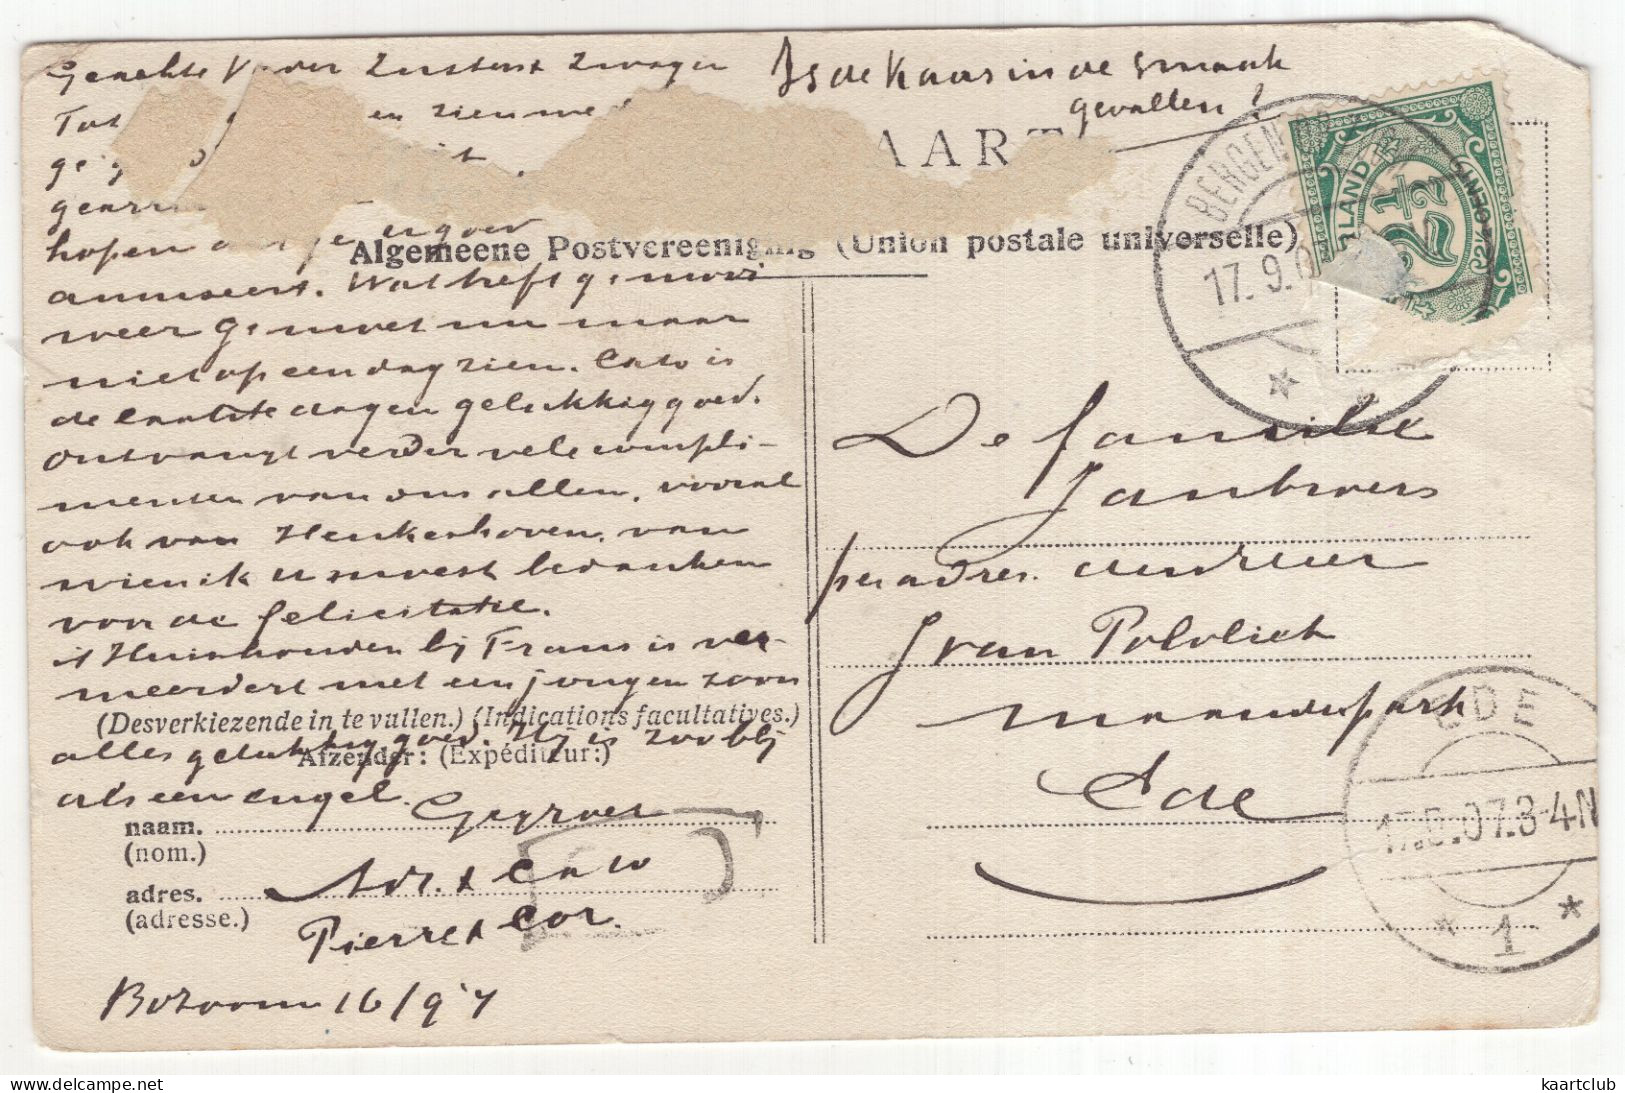 Geachte Vader Zusters & Zwager
Is de Kaas in de smaak
gevallen?
en zien
AART
hopen
Algemeene Postvereeniging (Union postale universelle)
amuseert. Wat heeft
weer nu maar
niet op een dag zien. Cato is
de laatste dagen gelukkig goed.
ontvangt verder vele compli-
menten van ons allen, vooral
ook van Henkenhoven, van
wien ik u moest bedanken
voor de felicitatie.
't Huishouden bij Frans is ver-
meerdert met een jongen zoon
(Desverkiezende in te vullen.) (Indications facultatives.)
alles gelukkig goed. Hij is zoo blij
Afzender: (Expéditeur:)
als een engel.
Gegroet
naam.
(nom.)
Adr. & Cato
adres.
(adresse.)
Pierre & Cor.
BoZoom 16/9 '7
BERGEN OP
17.9.0
LAND
2½
2½ CENT
De familie
Janbroers
per adres
J van
maanderpark
Ede
EDE
17.9.07.3-4N
1
kaartclub